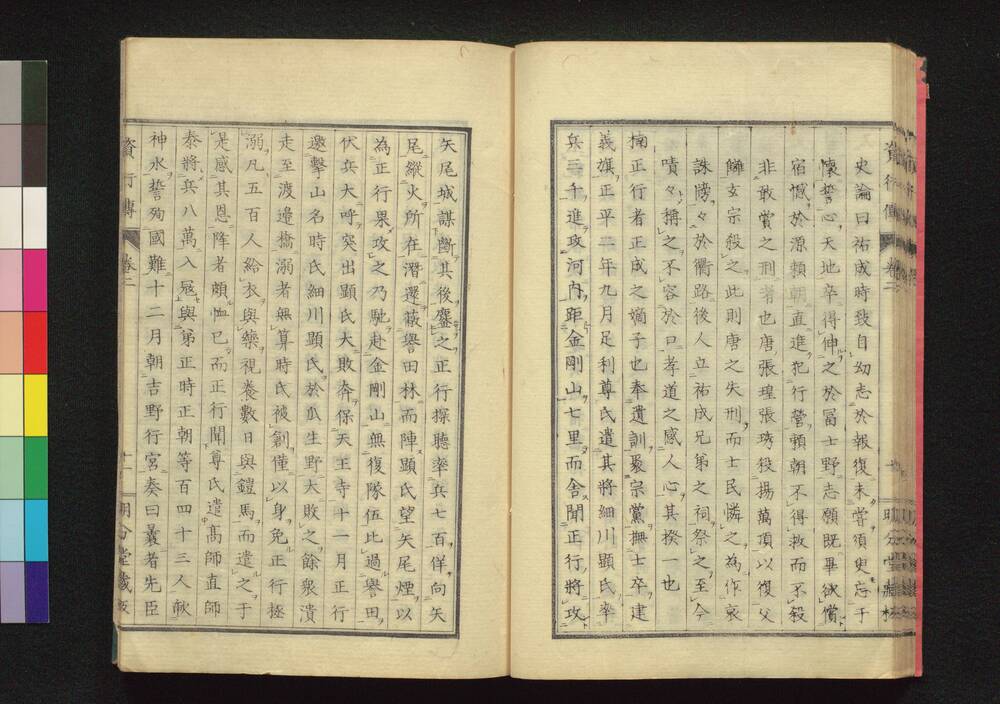 史論曰祐成時致自幼志於報復未嘗須臾忘于
懷誓心天地卒得伸之於冨士野志願既畢欲償
宿憾於源賴朝直進犯行營賴朝不得赦而不殺
非敢賞之刑者也唐張瑝張琇殺揚萬頃以復父
讎玄宗殺之此則唐之失刑而士民憐之為作哀
誄牓々於衢路後人立祐成兄弟之祠祭之至今
嘖々稱之不容於口孝道之感人心其揆一也
楠正行者正成之嫡子也奉遺訓聚宗黨撫士卒建
義旗正平二年九月足利尊氏遣其將細川顯氏率
兵三千進攻河內距金剛山七里而舍聞正行將攻
矢尾城謀斷其後鏖之正行探聽率兵七百佯向矢
尾縱火所在潛還蔽譽田林而陣顯氏望矢尾煙以
為正行果攻之乃馳赴金剛山無復隊伍比過譽田
伏兵大呼突出顯氏大敗奔保天王寺十一月正行
邀擊山名時氏細川顯氏於瓜生野大敗之餘衆潰
走至渡邉橋溺者無算時氏被創僅以身免正行拯
溺凡五百人給衣與藥視養數日與鎧馬而遣之于
是感其恩降者頗恤已而正行聞尊氏遣髙師直師
泰將兵八萬入寇與弟正時正朝等百四十三人歃
神水誓殉國難十二月朝吉野行宮奏曰曩者先臣
資行傳 卷二 十一 明分堂藏板